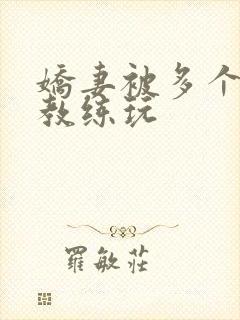 嬌妻被多个
教练玩
羅敏莊